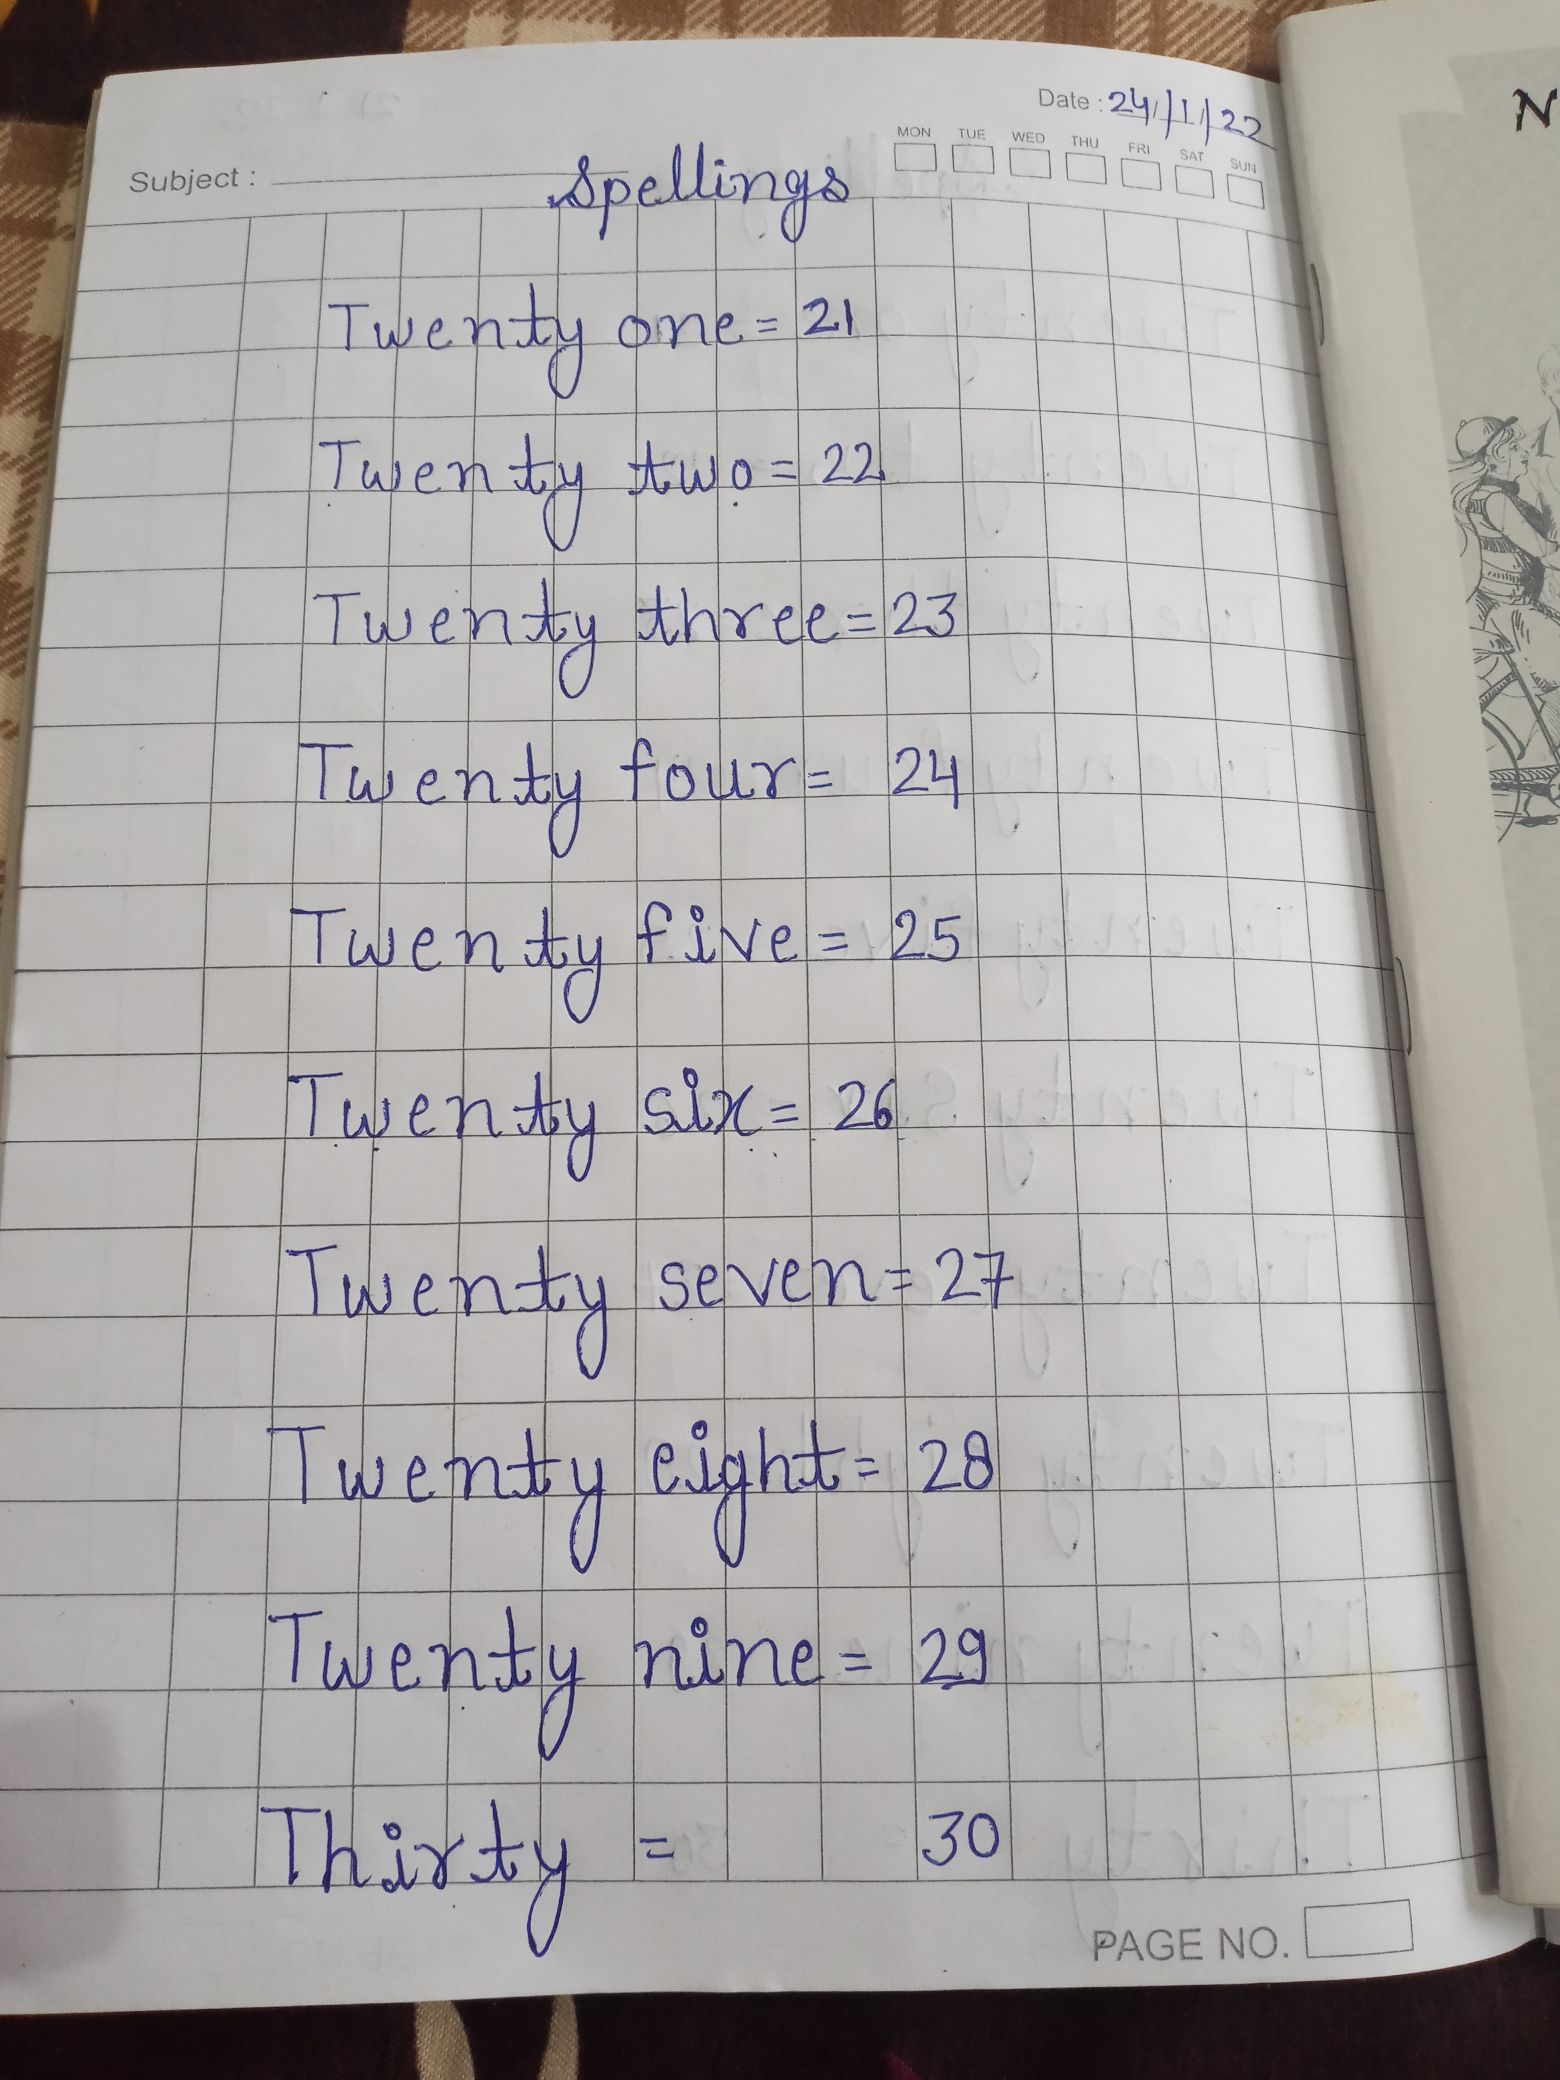 Date : 24/1/22
MON TUE WED THU FRI SAT SUN
Subject :
Spellings
Twenty one = 21
Twenty two = 22
Twenty three = 23
Twenty four = 24
Twenty five = 25
Twenty six = 26
Twenty seven = 27
Twenty eight = 28
Twenty nine = 29
Thirty = 30
PAGE NO.